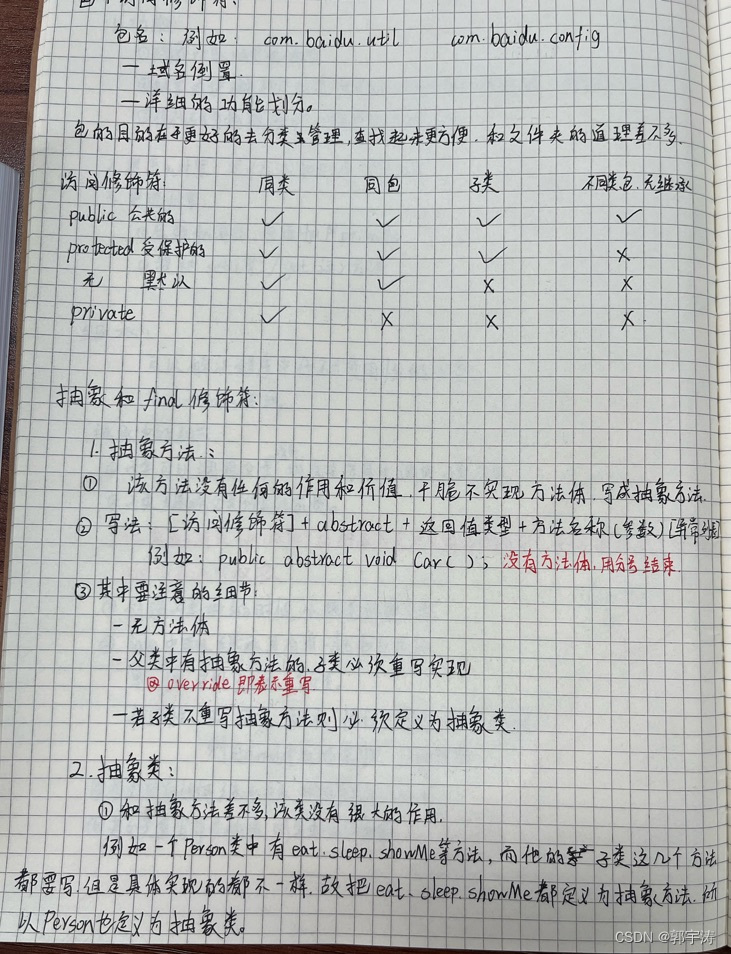 访问修饰符:
包名: 例如: com.baidu.util com.baidu.config
— 域名倒置.
— 详细的功能划分。
包的目的在于更好的去分类管理,查找起来更方便. 和文件夹的道理差不多.
访问修饰符: 同类 同包 子类 不同类包.无继承
public 公共的 ✓ ✓ ✓ ✓
protected 受保护的 ✓ ✓ ✓ ×
无 默认 ✓ ✓ × ×
private ✓ × × ×.
抽象和 final 修饰符:
1. 抽象方法:
① 该方法没有任何的作用和价值.干脆不实现方法体.写成抽象方法.
② 写法: [访问修饰符]+ abstract + 返回值类型+方法名称(参数)
例如: public abstract void Car( ); 没有方法体.用分号结束.
③ 其中要注意的细节:
— 无方法体
— 父类中有抽象方法的.子类必须重写实现
@ override 即表示重写
— 若子类不重写抽象方法则必须定义为抽象类.
2. 抽象类:
① 和抽象方法差不多,该类没有很大的作用.
例如一个Person类中有eat.sleep.showMe等方法,而他的子类这几个方法
都要写.但是具体实现的都不一样.故把eat.sleep.showMe都定义为抽象方法.所
以Person也定义为抽象类。
CSDN @郭宇涛